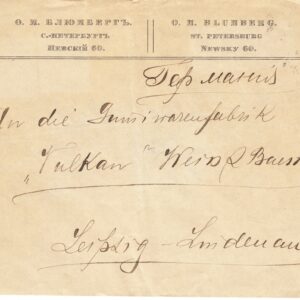 Ѳ. М. БЛЮМБЕРГЪ. O. M. BLUMBERG.
С.-ПЕТЕРБУРГЪ ST. PETERSBURG
Невскій 60. Newsky 60.
Германія
An die Gumiwarenfabrik
„Vulkan" Weiss &
Leipzig - Lindenau